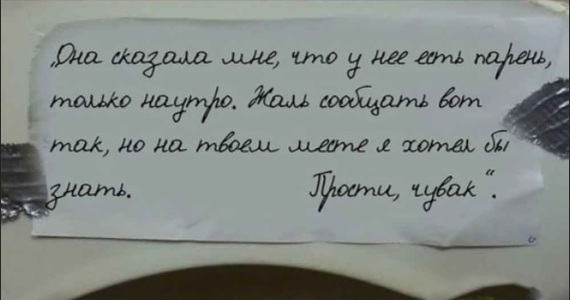 „Она сказала мне, что у нее есть парень,
только наутро. Жаль сообщать вот
так, но на твоем месте я хотел бы
знать. Прости, чувак“.